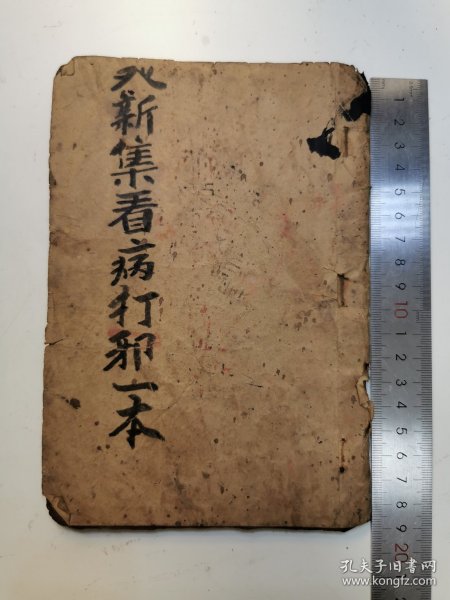 新集看病打邪一本
1
2
3
4
5
6
7
8
9
10
1
2
3
4
5
6
7
8
9
20
孔夫子旧书网
www.kongfz.com